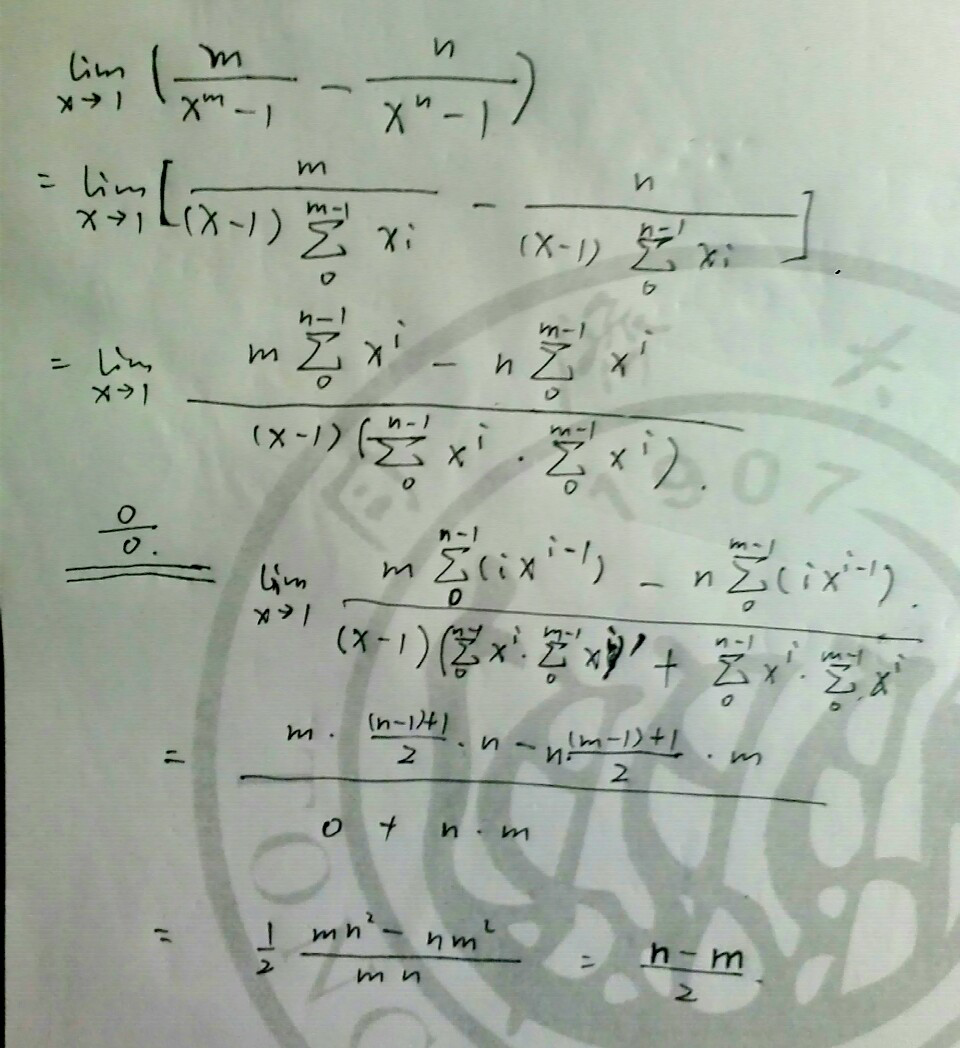 lim x→1 ( m/(x^m − 1) − n/(x^n − 1) )
= lim x→1 [ m/((x−1) ∑_0^{m-1} xi) − n/((x−1) ∑_0^{n-1} xi) ] .
= lim x→1 (m ∑_0^{n-1} x^i − n ∑_0^{m-1} x^i)/((x−1)(∑_0^{n-1} x^i · ∑_0^{m-1} x^i)) .
0/0. lim x→1 (m ∑_0^{n-1}(i x^{i-1}) − n ∑_0^{m-1}(i x^{i-1}) .)/((x−1)(∑_0^{n-1} x^i · ∑_0^{m-1} x^i)' + ∑_0^{n-1} x^i · ∑_0^{m-1} x^i)
= (m · ((n−1)+1)/2 · n − n · ((m−1)+1)/2 · m)/(0 + n · m)
= 1/2 (mn² − nm²)/(mn) = (n − m)/2 .
1907